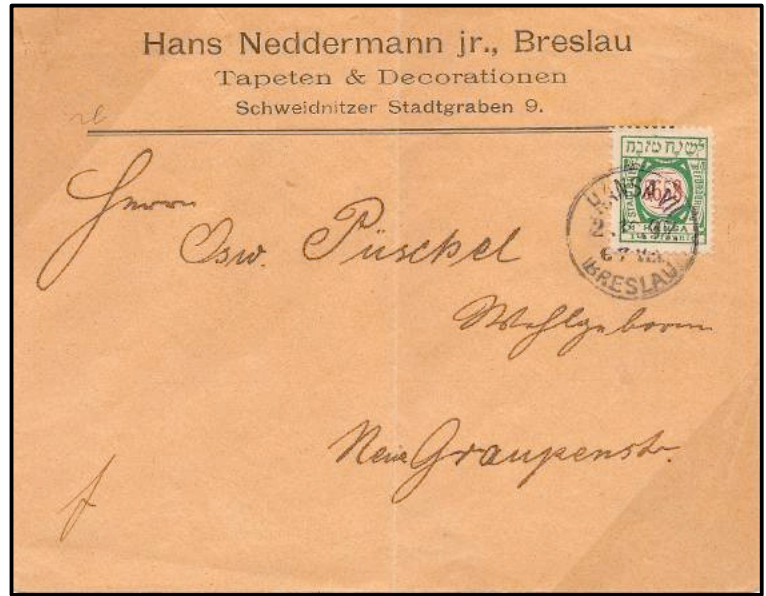 Hans Neddermann jr., Breslau
Tapeten & Decorationen
Schweidnitzer Stadtgraben 9.
לשנה טובה
5658
HANSA
HANSA
6-7
BRESLAU
Herrn
Osw. Püschel
Wohlgeboren
Neue Graupenstr.